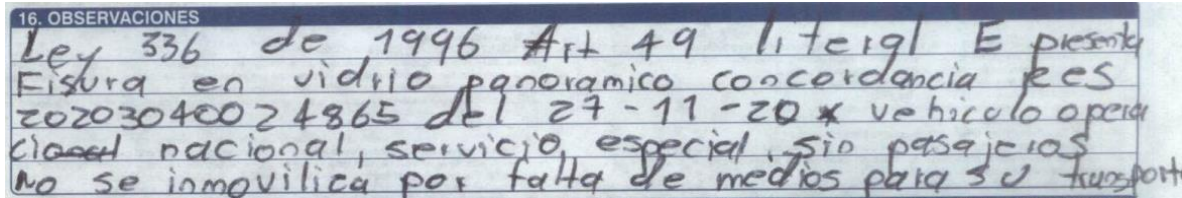 16. OBSERVACIONES
Ley 336 de 1996 Art 49 literal E presenta
Fisura en vidrio panoramico concordancia Res
20203040024865 del 27-11-20 * vehiculo opera
cional nacional, servicio, especial, sin pasajeros
No se inmovilica por falta de medios para su transporte